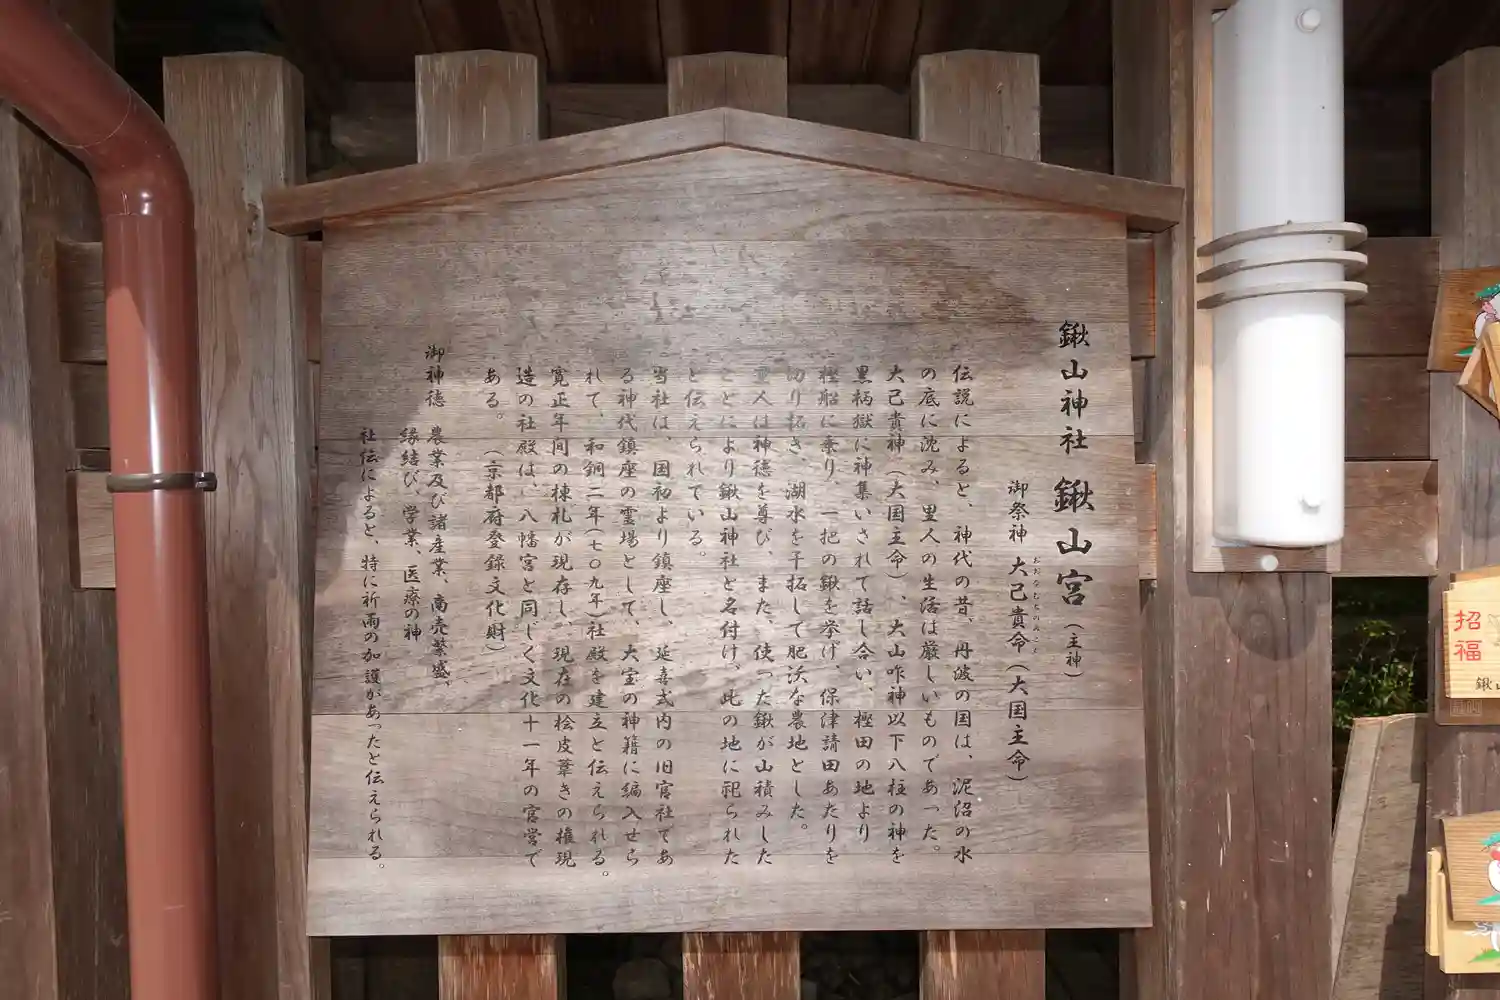 鍬山神社 鍬山宮（主神）
御祭神 大己貴命（大国主命）
おおなむちのみこと
伝説によると、神代の昔、丹波の国は、泥沼の水
の底に沈み、里人の生活は厳しいものであった。
大己貴神（大国主命）、大山咋神以下八柱の神を
黒柄獄に神集いされて話し合い、樫田の地より
樫船に乗り、一把の鍬を挙げ、保津請田あたりを
切り拓き、湖水を干拓して肥沃な農地とした。
里人は神徳を尊び、また、使った鍬が山積みした
ことにより鍬山神社と名付け、此の地に祀られた
と伝えられている。
当社は、国初より鎮座し、延喜式内の旧官社であ
る神代鎮座の霊場として、大宝の神籍に編入せら
れて、和銅二年（七〇九年）社殿を建立と伝えられる。
寛正年間の棟札が現存し、現在の桧皮葺きの権現
造の社殿は、八幡宮と同じく文化十一年の官営で
ある。（京都府登録文化財）
御神徳 農業及び諸産業、商売繁盛、
縁結び、学業、医療の神
社伝によると、特に祈雨の加護があったと伝えられる。
招福
鍬山